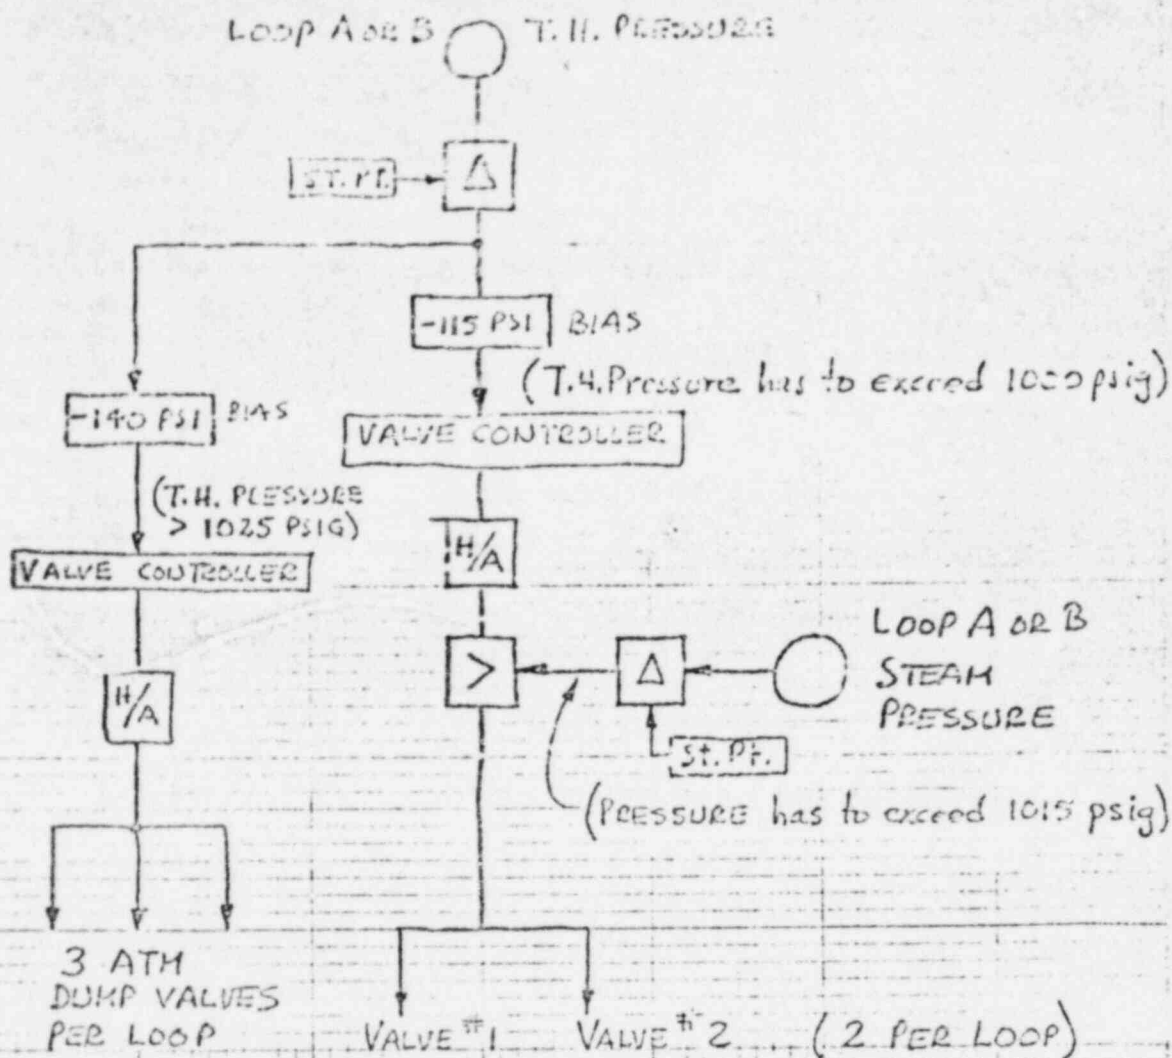 LOOP A OR B T.H. PRESSURE
ST. PT.
Δ
-115 PSI BIAS
(T.H. Pressure has to exceed 1000 psig)
-140 PSI BIAS
VALVE CONTROLLER
(T.H. PRESSURE
> 1025 PSIG)
VALVE CONTROLLER
H/A
H/A
>
Δ
LOOP A OR B
STEAM
PRESSURE
St. Pt.
(PRESSURE has to exceed 1015 psig)
3 ATM
DUMP VALVES
PER LOOP
VALVE #1 VALVE #2 (2 PER LOOP)